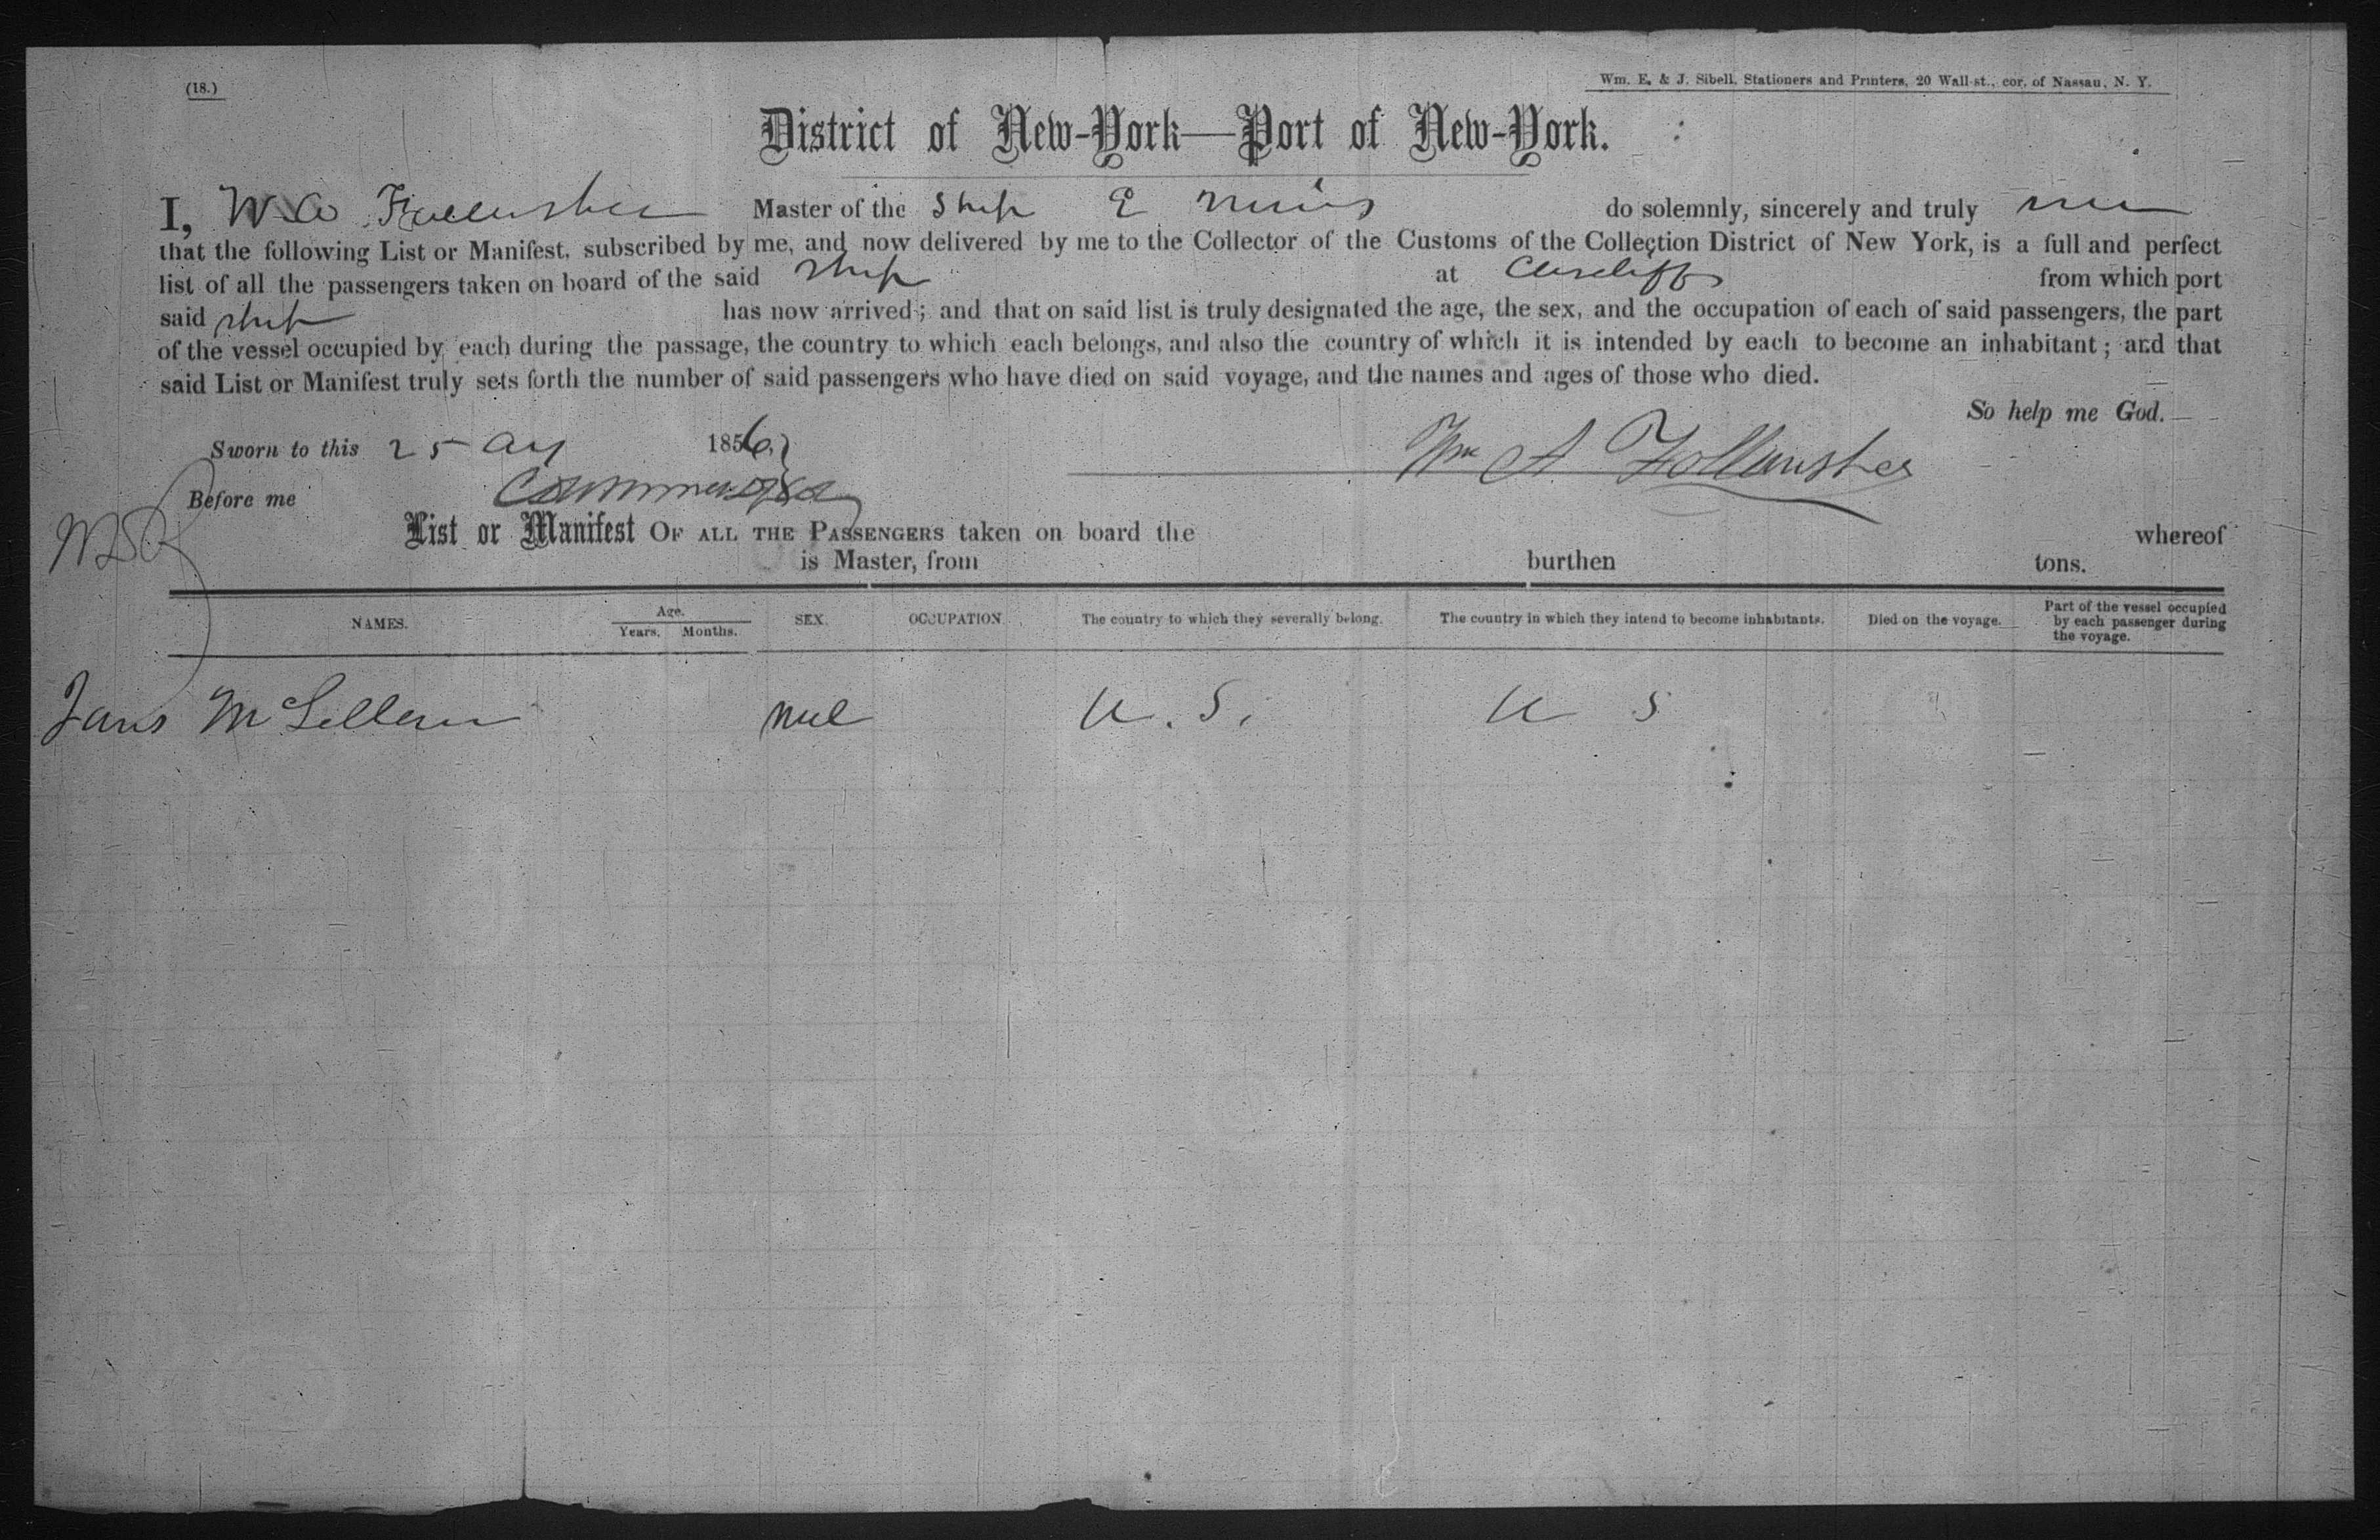 (18.)
Wm. E. & J. Sibell, Stationers and Printers, 20 Wall-st., cor. of Nassau, N. Y.
District of New-York—Port of New-York.
I, W A Master of the Ship E do solemnly, sincerely and truly
that the following List or Manifest, subscribed by me, and now delivered by me to the Collector of the Customs of the Collection District of New York, is a full and perfect
list of all the passengers taken on board of the said Ship at Cardiff from which port
said ship has now arrived; and that on said list is truly designated the age, the sex, and the occupation of each of said passengers, the part
of the vessel occupied by each during the passage, the country to which each belongs, and also the country of which it is intended by each to become an inhabitant; and that
said List or Manifest truly sets forth the number of said passengers who have died on said voyage, and the names and ages of those who died.
So help me God.
Sworn to this 25 1856
Wm A Follansbee
Before me
List or Manifest OF ALL THE PASSENGERS taken on board the whereof
is Master, from burthen tons.
NAMES. Age. Years. Months. SEX. OCCUPATION. The country to which they severally belong. The country in which they intend to become inhabitants. Died on the voyage. Part of the vessel occupied by each passenger during the voyage.
McLellan U. S. U S